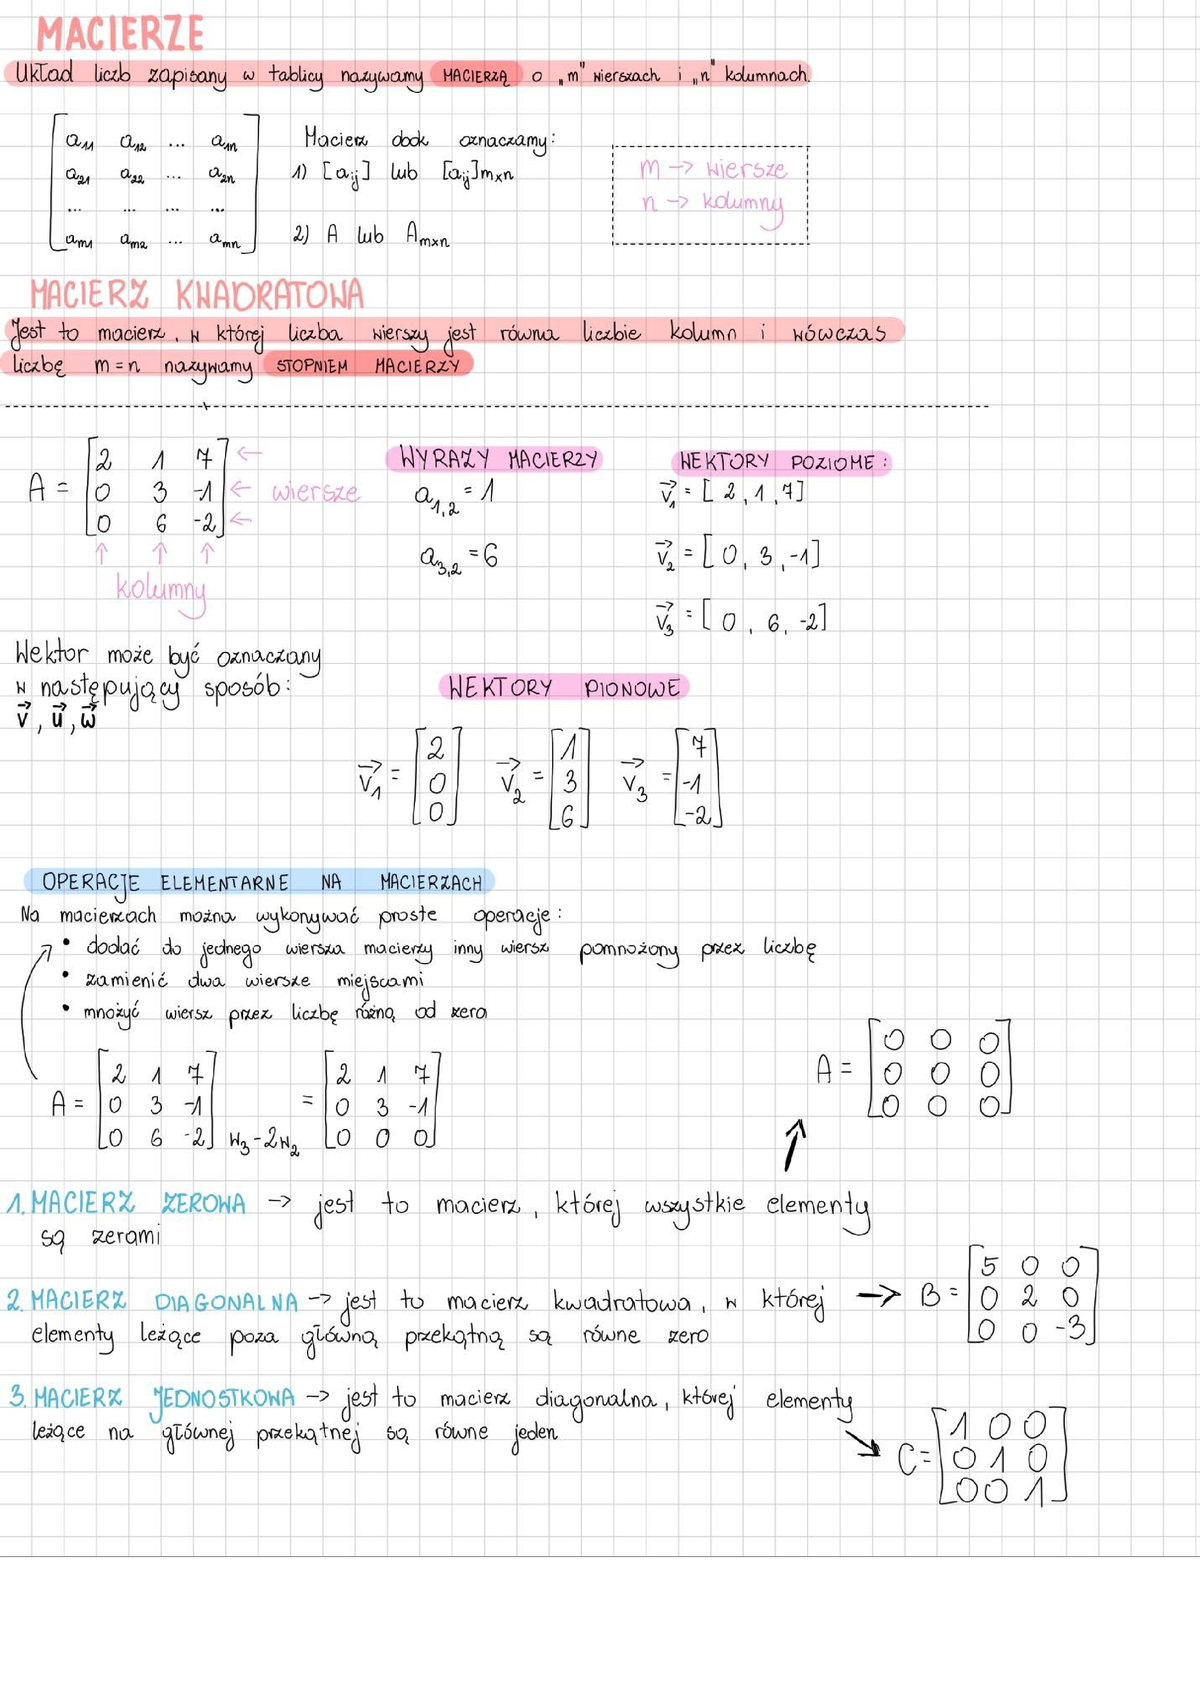 MACIERZE
Układ liczb zapisany w tablicy nazywamy MACIERZĄ o „m" wierszach i „n" kolumnach.
a11 a12 ... a1n
a21 a22 ... a2n
... ... ... ...
am1 am2 ... amn
Macierz obok oznaczamy:
1) [aij] lub [aij]mxn
2) A lub Amxn
m -> wiersze
n -> kolumny
MACIERZ KWADRATOWA
Jest to macierz, w której liczba wierszy jest równa liczbie kolumn i wówczas
liczbę m=n nazywamy STOPNIEM MACIERZY
A = [2 1 7
0 3 -1
0 6 -2]
← wiersze
↑ ↑ ↑
kolumny
WYRAZY MACIERZY
a1,2 = 1
a3,2 = 6
WEKTORY POZIOME:
v⃗1 = [2, 1, 7]
v⃗2 = [0, 3, -1]
v⃗3 = [0, 6, -2]
Wektor może być oznaczany
w następujący sposób:
v⃗, u⃗, w⃗
WEKTORY PIONOWE
v⃗1 = [2 0 0] v⃗2 = [1 3 6] v⃗3 = [7 -1 -2]
OPERACJE ELEMENTARNE NA MACIERZACH
Na macierzach można wykonywać proste operacje:
• dodać do jednego wiersza macierzy inny wiersz pomnożony przez liczbę
• zamienić dwa wiersze miejscami
• mnożyć wiersz przez liczbę różną od zera
A = [2 1 7
0 3 -1
0 6 -2] W3-2W2
= [2 1 7
0 3 -1
0 0 0]
A = [0 0 0
0 0 0
0 0 0]
1. MACIERZ ZEROWA -> jest to macierz, której wszystkie elementy
są zerami
2. MACIERZ DIAGONALNA -> jest to macierz kwadratowa, w której
elementy leżące poza główną przekątną są równe zero
-> B = [5 0 0
0 2 0
0 0 -3]
3. MACIERZ JEDNOSTKOWA -> jest to macierz diagonalna, której elementy
leżące na głównej przekątnej są równe jeden
C = [1 0 0
0 1 0
0 0 1]